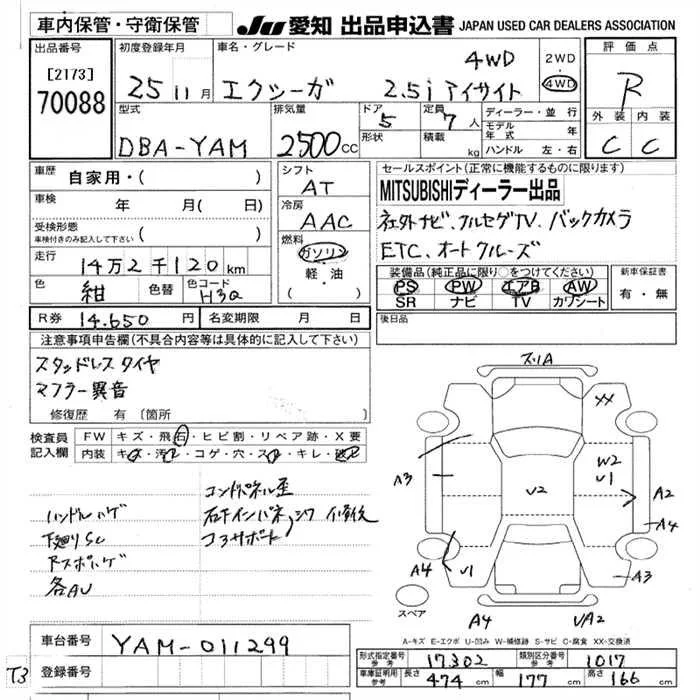 車内保管・守衛保管 JU 愛知 出品申込書 JAPAN USED CAR DEALERS ASSOCIATION
出品番号 [2173] 70088
初度登録年月 25 11 月
車名・グレード エクシーガ 2.5i アイサイト 4WD
2WD ・ 4WD
評価点 R
外装 C 内装 C
型式 DBA-YAM
排気量 2500 CC
ドア 5
形状
定員 7 人
積載 kg
ディーラー・並行
モデル年式 年
ハンドル 左・右
車歴 自家用・( )
車検 年 月( 日)
受検形態 車検付きのみ記入して下さい ( )
走行 14万2千120 km
色 紺 色替 色コード H3Q
シフト AT
冷房 AAC
燃料 ガソリン ・ 軽油
セールスポイント(正常に機能するものに限ります)
MITSUBISHIディーラー出品
社外ナビ、フルセグTV、バックカメラ
ETC、オートクルーズ
装備品(純正品に限り○をつけてください)
PS PW エアB AW
SR ナビ TV カワシート
新車保証書 有・無
R券 14.650 円 名変期限 月 日
後日品
注意事項申告欄(不具合内容等は具体的に記入して下さい)
スタッドレスタイヤ
マフラー異音
修復歴 有 〔箇所 〕
検査員記入欄
FW キズ・飛石・ヒビ割・リペア跡・X要
内装 キズ・汚れ・コゲ・穴・スレ・キレ・破れ
コンドパネル歪
ハンドルハゲ 右下インパネ、シワ 修後
下廻りSC コアサポート
Rスポハゲ
各AU
ズリA
XX
A3
W2
U1
U2
A2
A4
A4
U1
A3
スペア
A4
UA2
A-キズ E-エクボ U-凹み W-補修跡 S-サビ C-腐食 XX-交換済
車台番号 YAM-011299
登録番号
T3
形式指定番号 参考 17302 類別区分番号 参考 1017
車庫証明用 参考 長さ 474 cm 幅 177 cm 高さ 166 cm